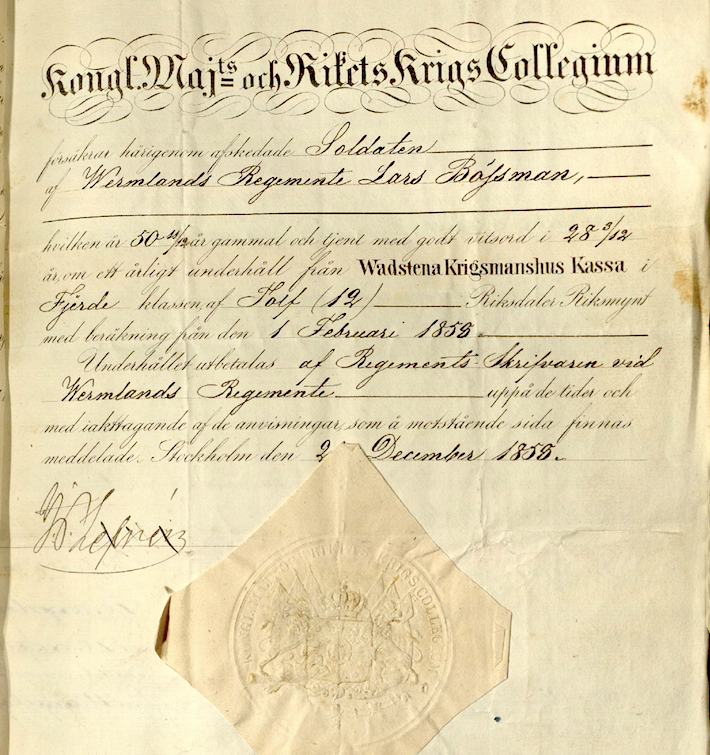 Kongl. Majts och Rikets Krigs Collegium
försäkrar härigenom afskedade Soldaten
af Wermlands Regemente Lars Bössman,
hvilken är 50 11/12 år gammal och tjent med godt vitsord i 28 3/12
år, om ett årligt underhåll från Wadstena Krigsmanshus Kassa i
Fjerde klassen, af Tolf (12) Riksdaler Riksmynt
med beräkning från den 1 Februari 1858.
Underhållet utbetalas af Regements Skrifvaren vid
Wermlands Regemente uppå de tider och
med iakttagande af de anvisningar, som å motstående sida finnas
meddelade. Stockholm den 2 December 1858.
KRIGSCOLLEGIUM